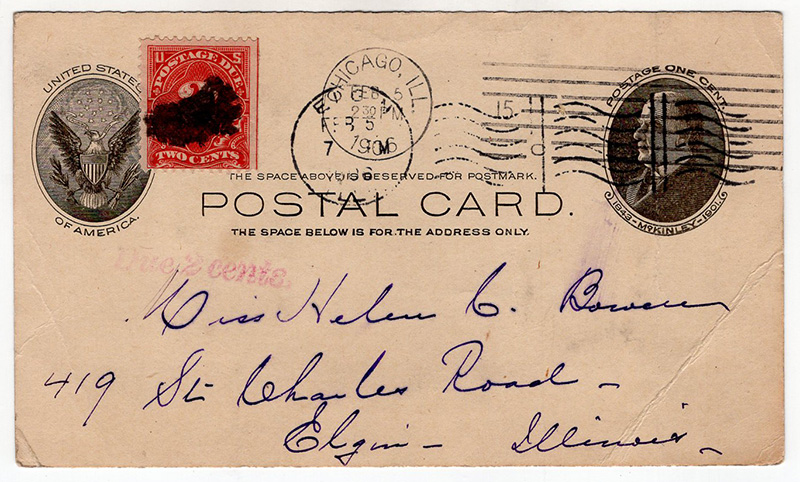 UNITED STATES
OF AMERICA.
U S
POSTAGE DUE
2
TWO CENTS
CHICAGO, ILL.
FEB 5
2 30 PM
1906
FEB 5
7 M
15
C
POSTAGE ONE CENT
1843-McKINLEY-1901.
THE SPACE ABOVE IS RESERVED FOR POSTMARK.
POSTAL CARD.
THE SPACE BELOW IS FOR THE ADDRESS ONLY.
Due 2 cents.
Miss Helen C. Bowen
419 St Charles Road -
Elgin - Illinois -